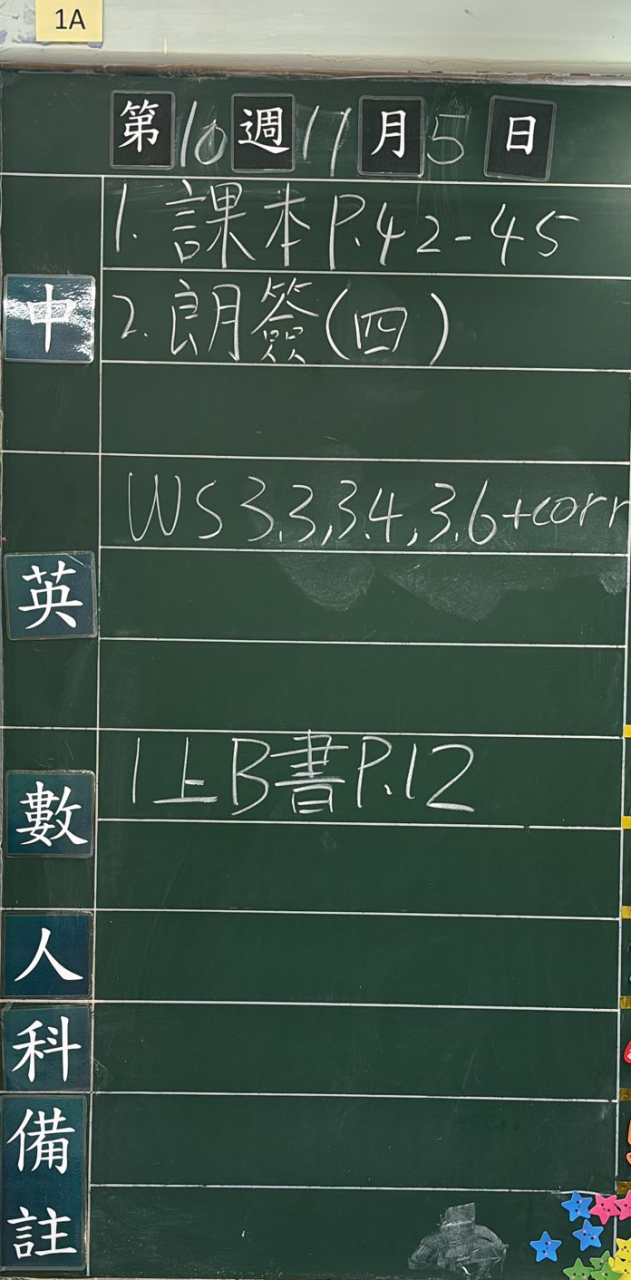 1A
第10週11月5日
1. 課本P.42-45
中
2. 朗簽(四)
WS 3.3,3.4,3.6+corr
英
1上B書P.12
數
人
科
備
註